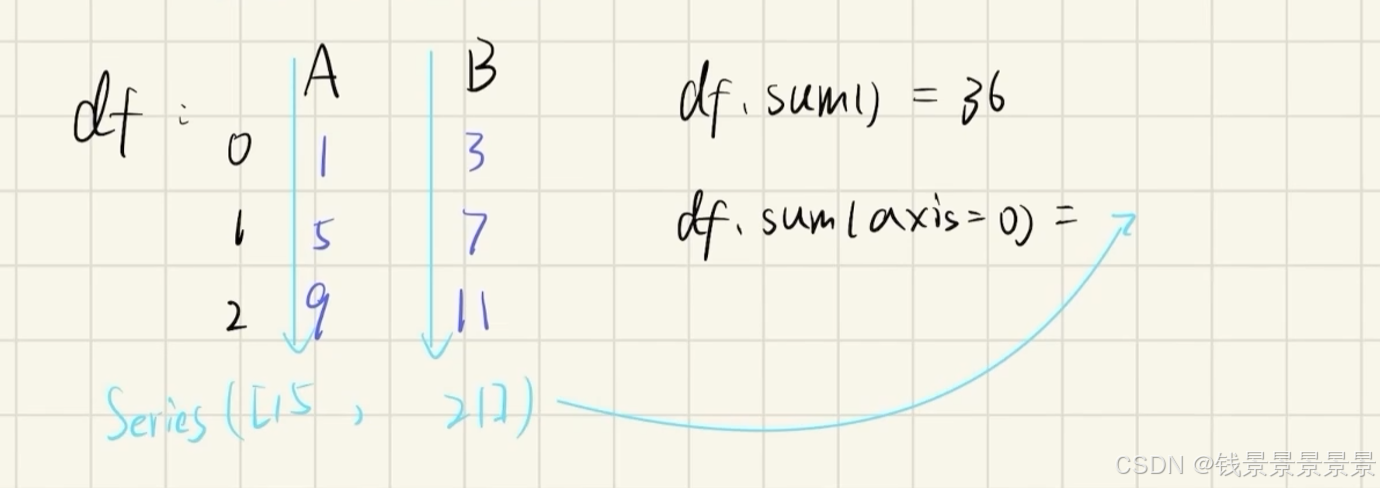 df : A B
0 1 3
1 5 7
2 9 11
Series([15 , 21])
df.sum() = 36
df.sum(axis=0) =
CSDN @钱景景景景景